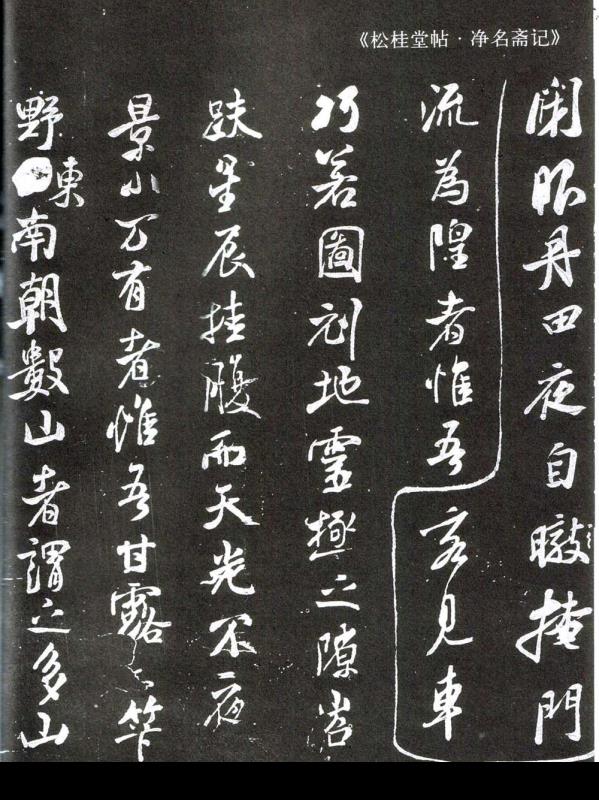 《松桂堂帖·净名斋记》
闲眠丹田夜自暾掩門
流為隍者惟吾客見車
巧若圖刻地靈極之隙岩
趺星辰挂腹而天光不夜
景小万有者惟吾甘露之竿
野東南朝數山者謂之多山